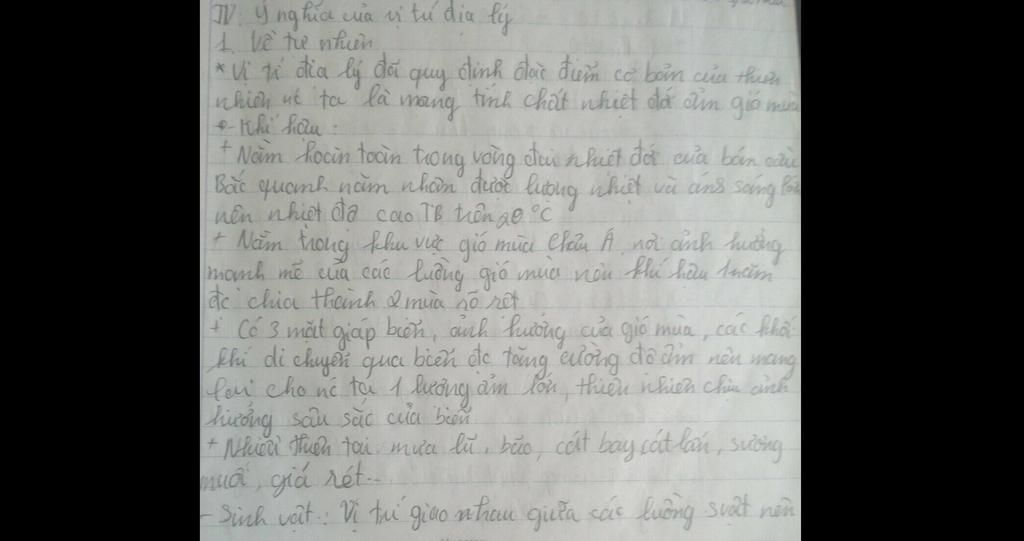 IV. Ý nghĩa của vị trí địa lý
1. Về tự nhiên
* Vị trí địa lý đã quy định đặc điểm cơ bản của thiên
nhiên nc ta là mang tính chất nhiệt đới ẩm gió mùa
- Khí hậu :
+ Nằm hoàn toàn trong vòng đai nhiệt đới của bán cầu
Bắc quanh năm nhận được lượng nhiệt và ánh sáng lớn
nên nhiệt độ cao TB trên 20 °C
+ Nằm trong khu vực gió mùa Châu Á nơi ảnh hưởng
mạnh mẽ của các luồng gió mùa nên khí hậu 1 năm
đc chia thành 2 mùa rõ rệt
+ Có 3 mặt giáp biển, ảnh hưởng của gió mùa, các khối
khí di chuyển qua biển đc tăng cường độ ẩm nên mang
lại cho nc ta 1 lượng ẩm lớn, thiên nhiên chịu ảnh
hưởng sâu sắc của biển
+ Nhiều thiên tai: mưa lũ, bão, cát bay cát lấn, sương
muối, giá rét...
- Sinh vật : Vị trí giao nhau giữa các luồng svật nên